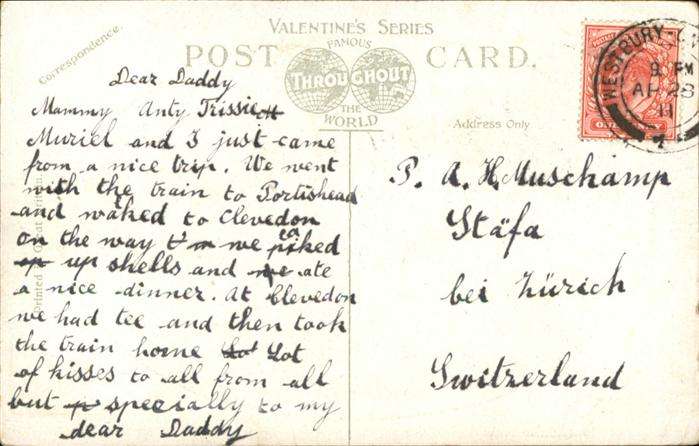 VALENTINE'S SERIES
FAMOUS
POST CARD.
THROUGHOUT
THE
WORLD
Correspondence.
Address Only
WESTBURY
8 PM
AP 28
11
7
Dear Daddy
Mammy Anty Trissie
Muriel and I just came
from a nice trip. We went
with the train to Portishead
and waked to Clevedon
on the way we piked
up shells and ate
a nice dinner. At Clevedon
we had tee and then took
the train home Lot
of kisses to all from all
but specially to my
dear Daddy
P. A. H. Muschamp
Stäfa
bei Zürich
Switzerland